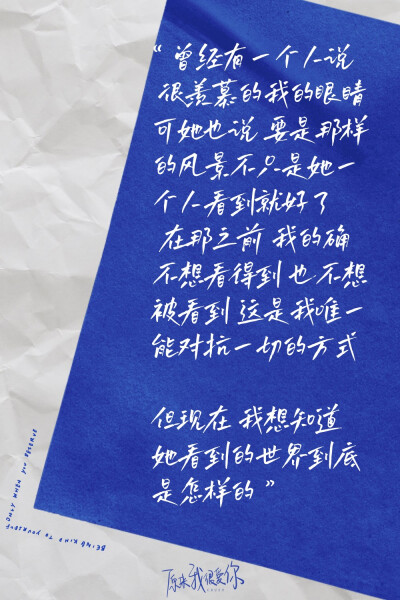 “ 曾经有一个人说
很羡慕的我的眼睛
可她也说 要是那样
的风景不只是她一
个人看到就好了
在那之前 我的确
不想看得到也不想
被看到 这是我唯一
能对抗一切的方式
但现在 我想知道
她看到的世界到底
是怎样的 ”
ONLY WHEN YOU
BEING KIND TO YOURSELF
原来我很爱你